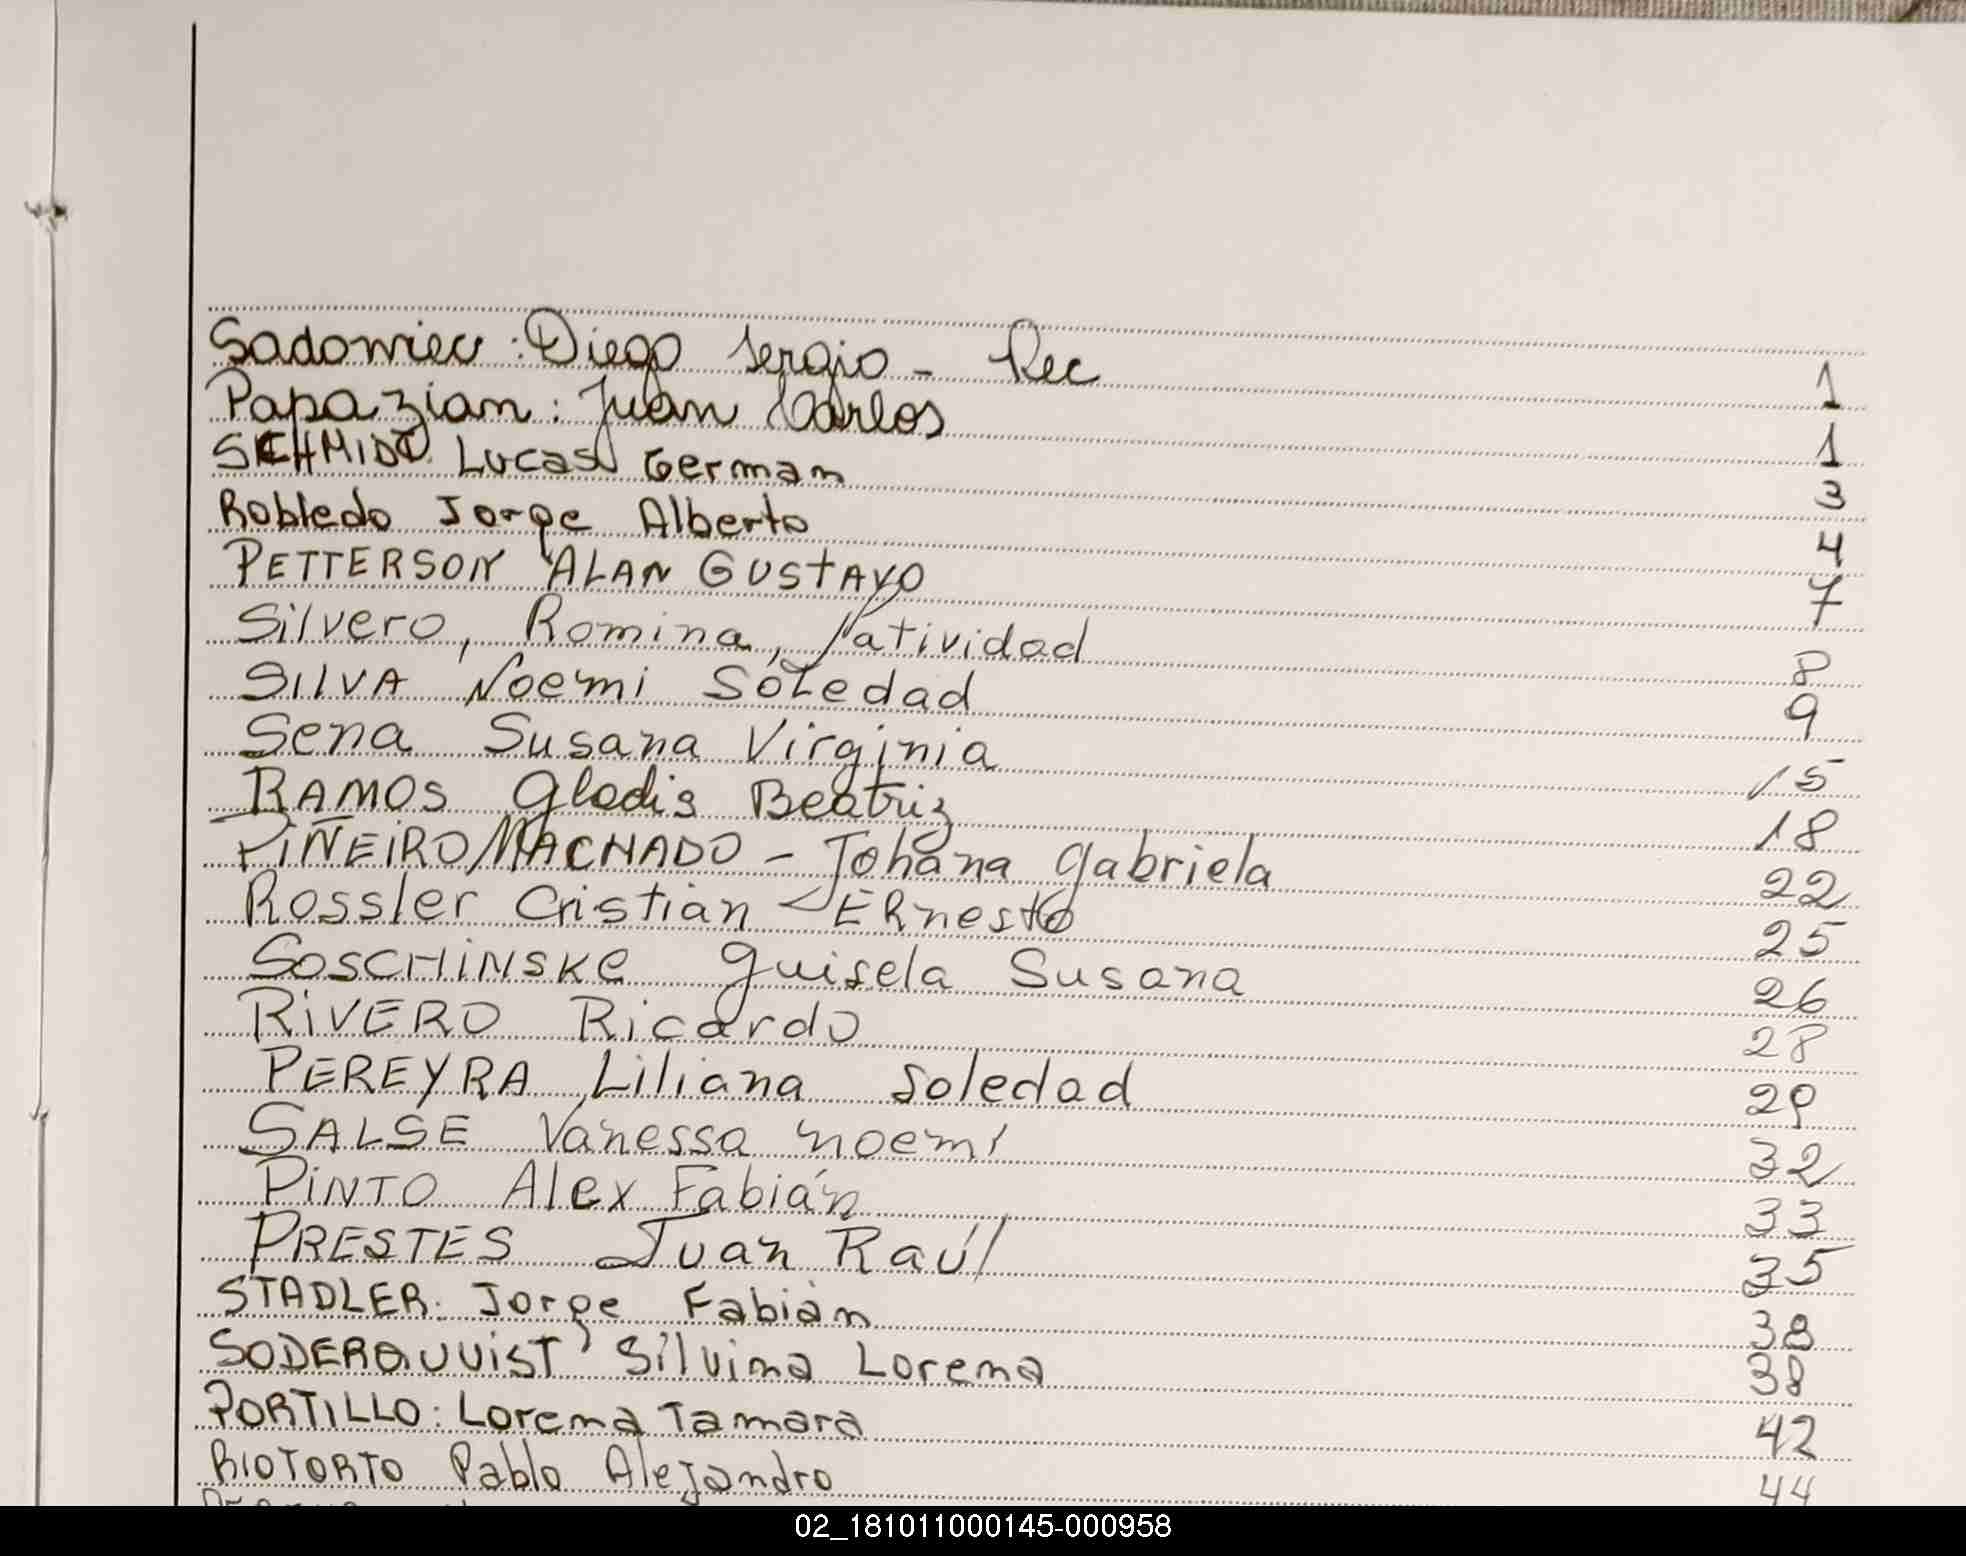 Sadowiec: Diego Sergio - Rec 1
Papazian: Juan Carlos 1
SCHMIDT Lucas German 3
Robledo Jorge Alberto 4
PETTERSON ALAN GUSTAVO 7
Silvero, Romina, Natividad 8
SILVA Noemi Soledad 9
Sena Susana Virginia 15
RAMOS Gladis Beatriz 18
PIÑEIRO MACHADO - Johana Gabriela 22
Rossler Cristian - ERnesto 25
SOSCHINSKE Guisela Susana 26
RIVERO Ricardo 28
PEREYRA, Liliana Soledad 29
SALSE Vanessa Noemi 32
PINTO Alex Fabián 33
PRESTES Juan Raúl 35
STADLER: Jorge Fabián 38
SODERQUVIST Silvina Lorena 38
PORTILLO: Lorena Tamara 42
RIOTORTO Pablo Alejandro 44
02_181011000145-000958